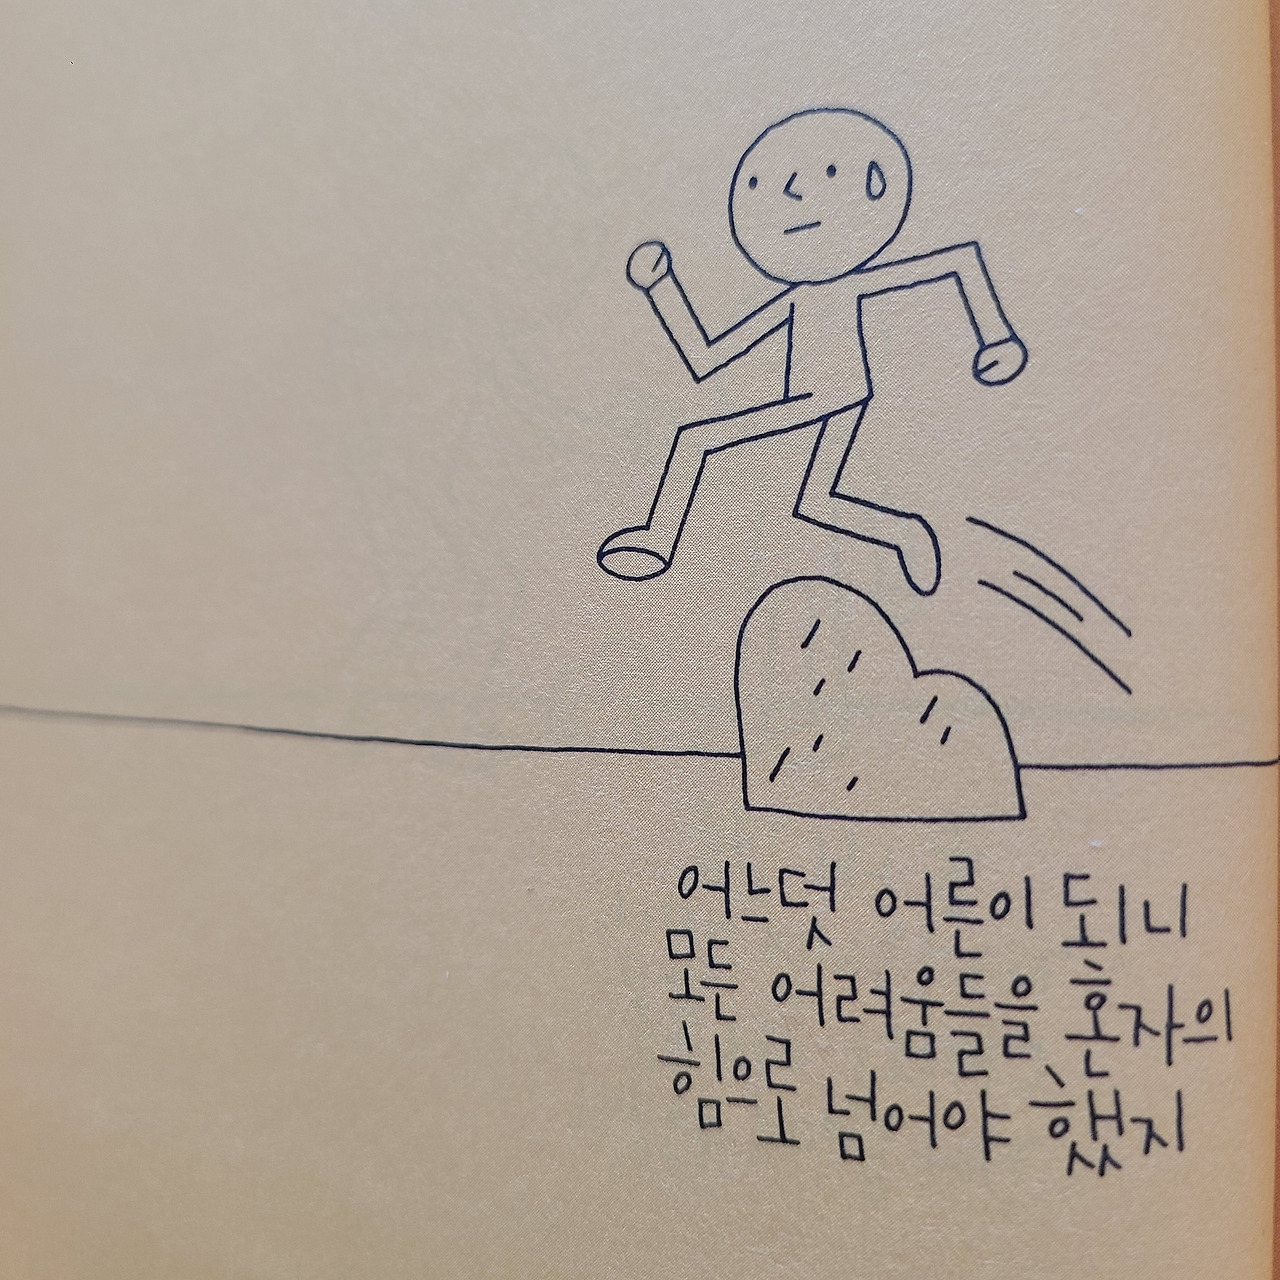 어느덧 어른이 되니
모든 어려움들을 혼자의
힘으로 넘어야 했지